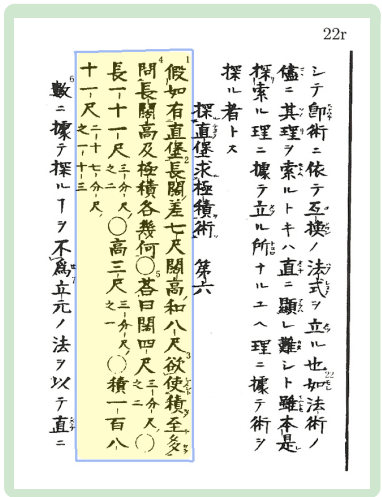 22r
シテ即術ニ依テ互換ノ法式ヲ立ル也如法術ノ
儘ニ其理ヲ索ルトキハ直ニ顯レ難シト雖本是
探索ル理ニ據テ立ル所ナルユヘ理ニ據テ術ヲ
探ル者トス
探直堡求極積術 第六
假如有直堡長闊差七尺闊高和八尺欲使積至多
問長闊高及極積各幾何〇荅曰闊四尺三分尺之二〇
長一十一尺三分尺之二〇高三尺三分尺之一〇積一百八
十一尺二十七分尺之一十三
數ニ據テ探ルヿヲ不爲立元ノ法ヲ以テ直ニ